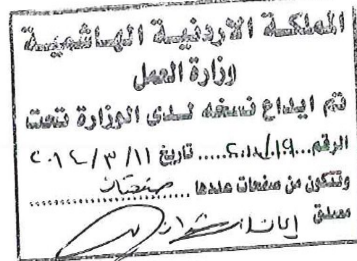 المملكة الاردنية الهاشمية
وزارة العمل
تم ايداع نسخه لدى الوزارة تحت
الرقم ... تاريخ ٢٠١٤/٣/١١
وتتكون من صفحات عددها صفحتان
مصدق